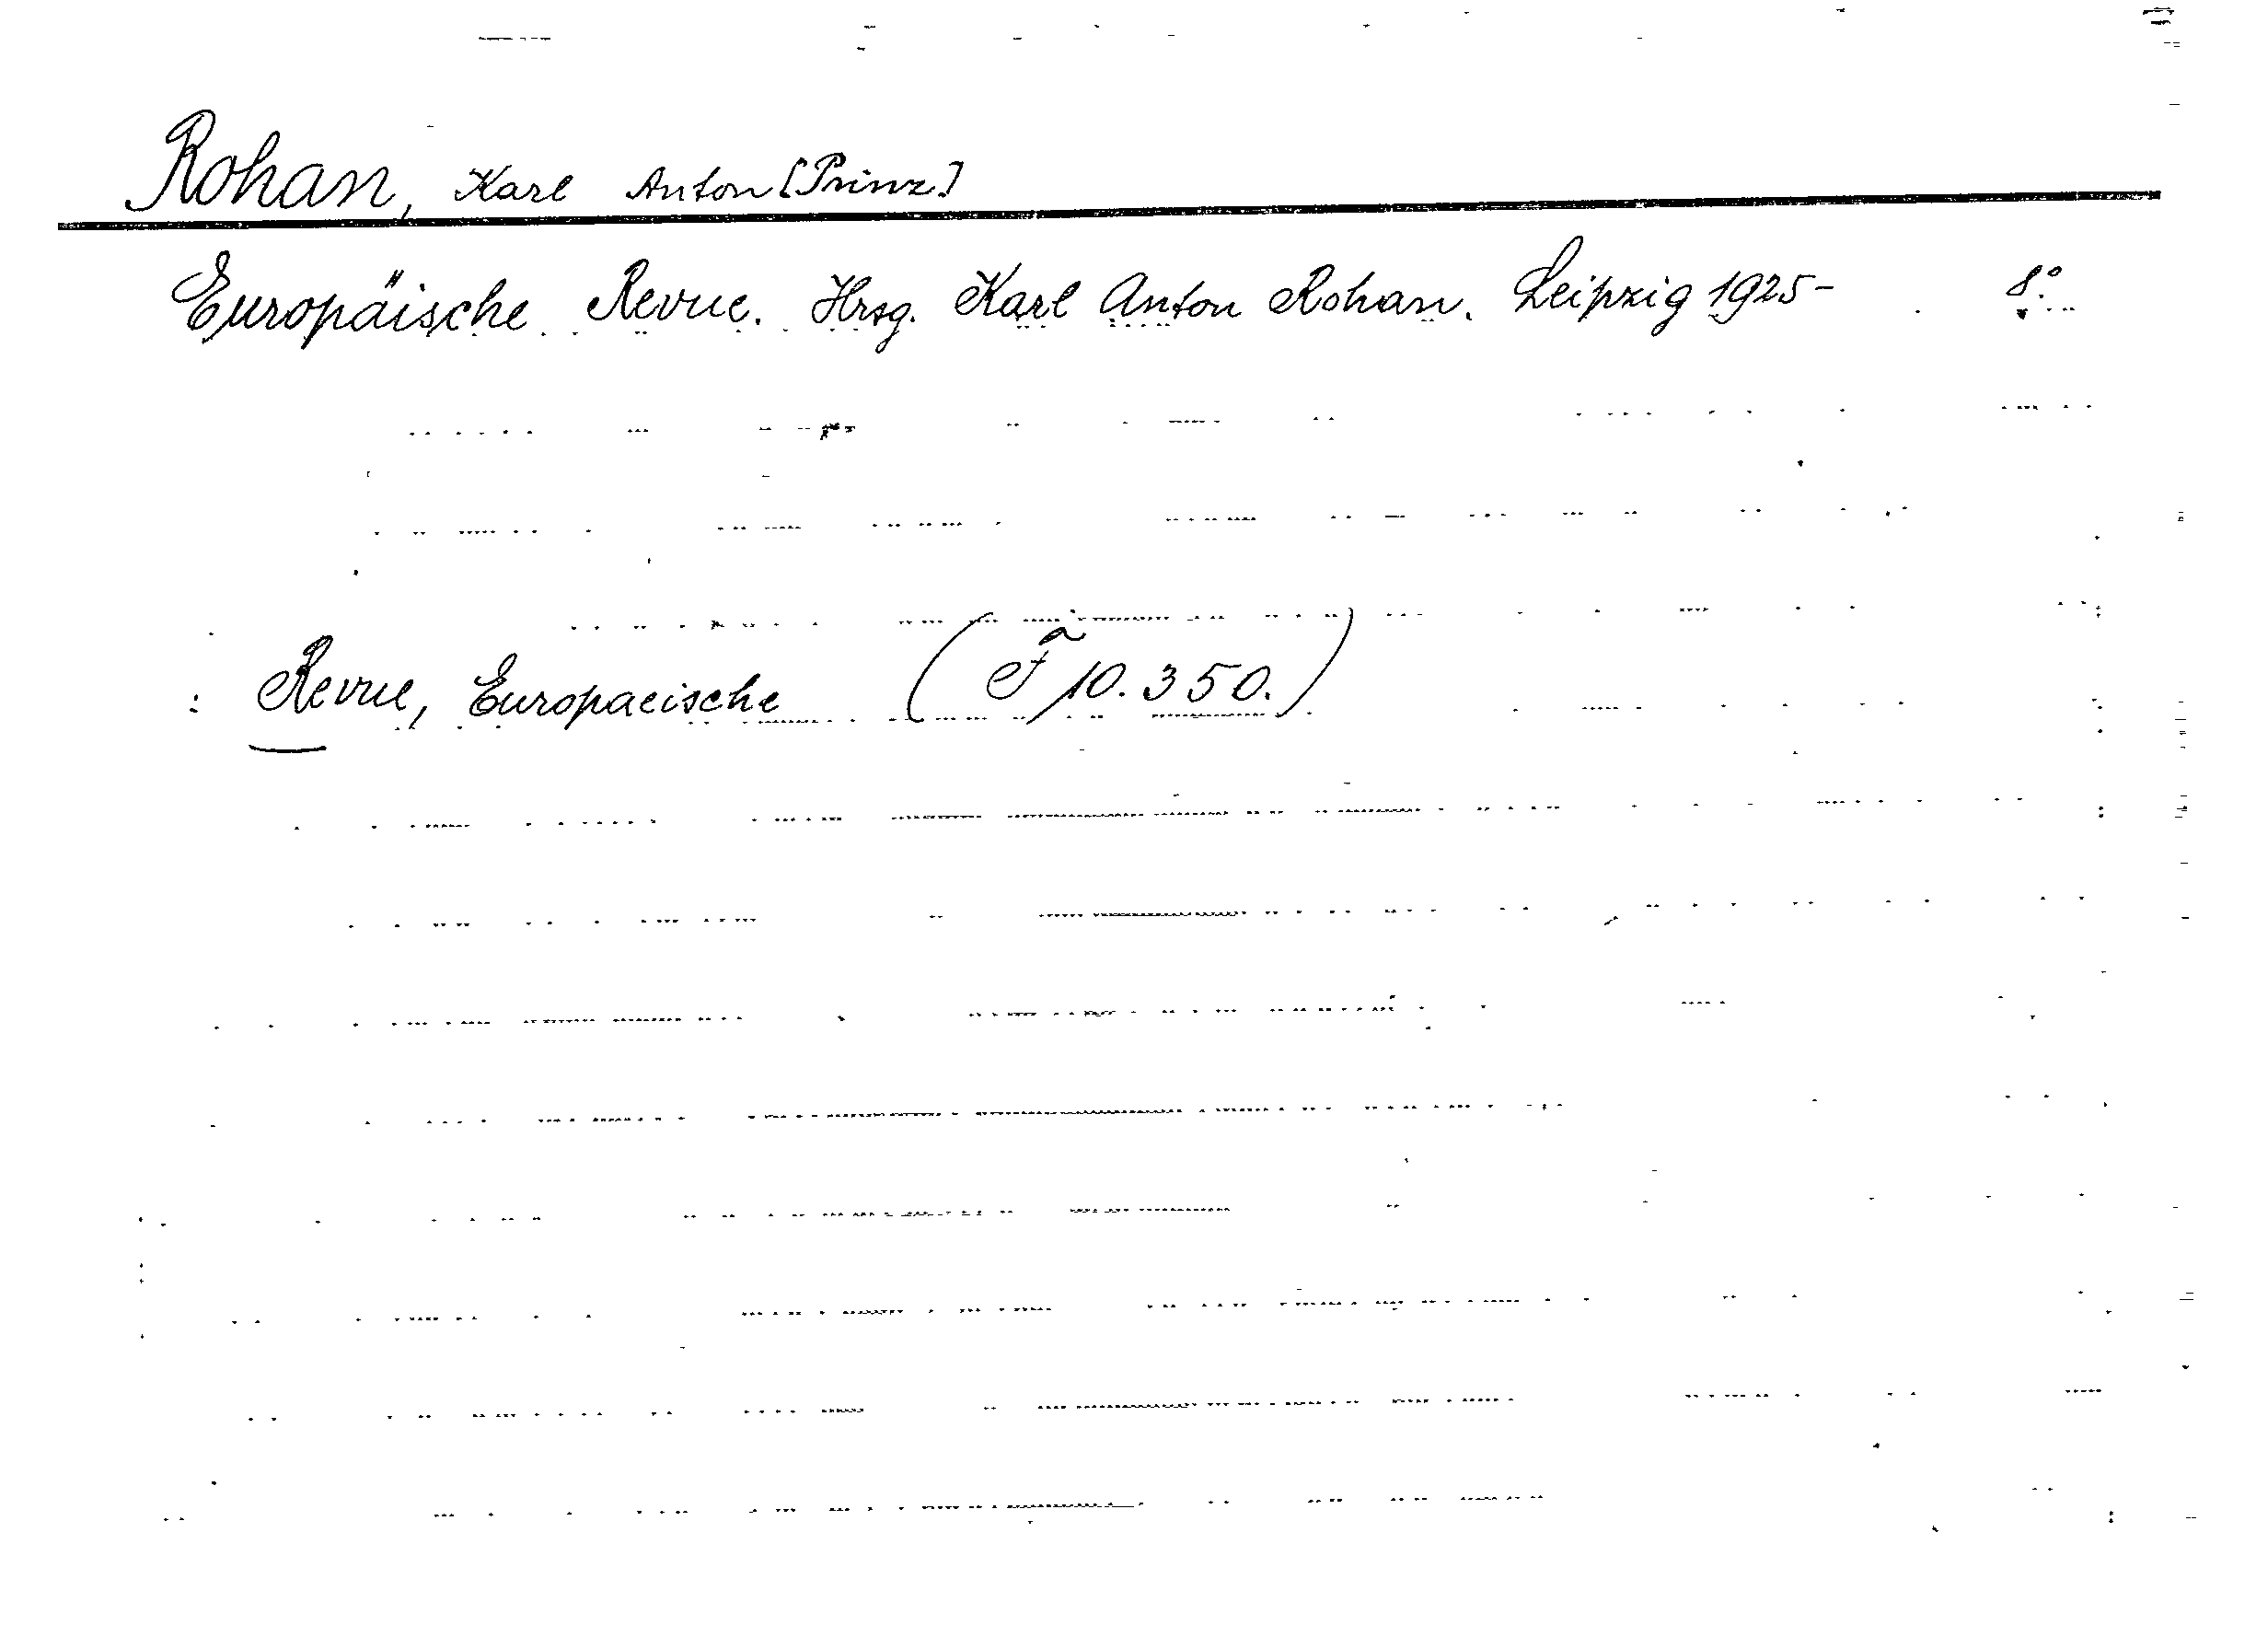 Rohan, Karl Anton [Prinz]
Europäische Revue. Hrsg. Karl Anton Rohan. Leipzig 1925- 8°.
: Revue, Europaeische (F 10.350.)